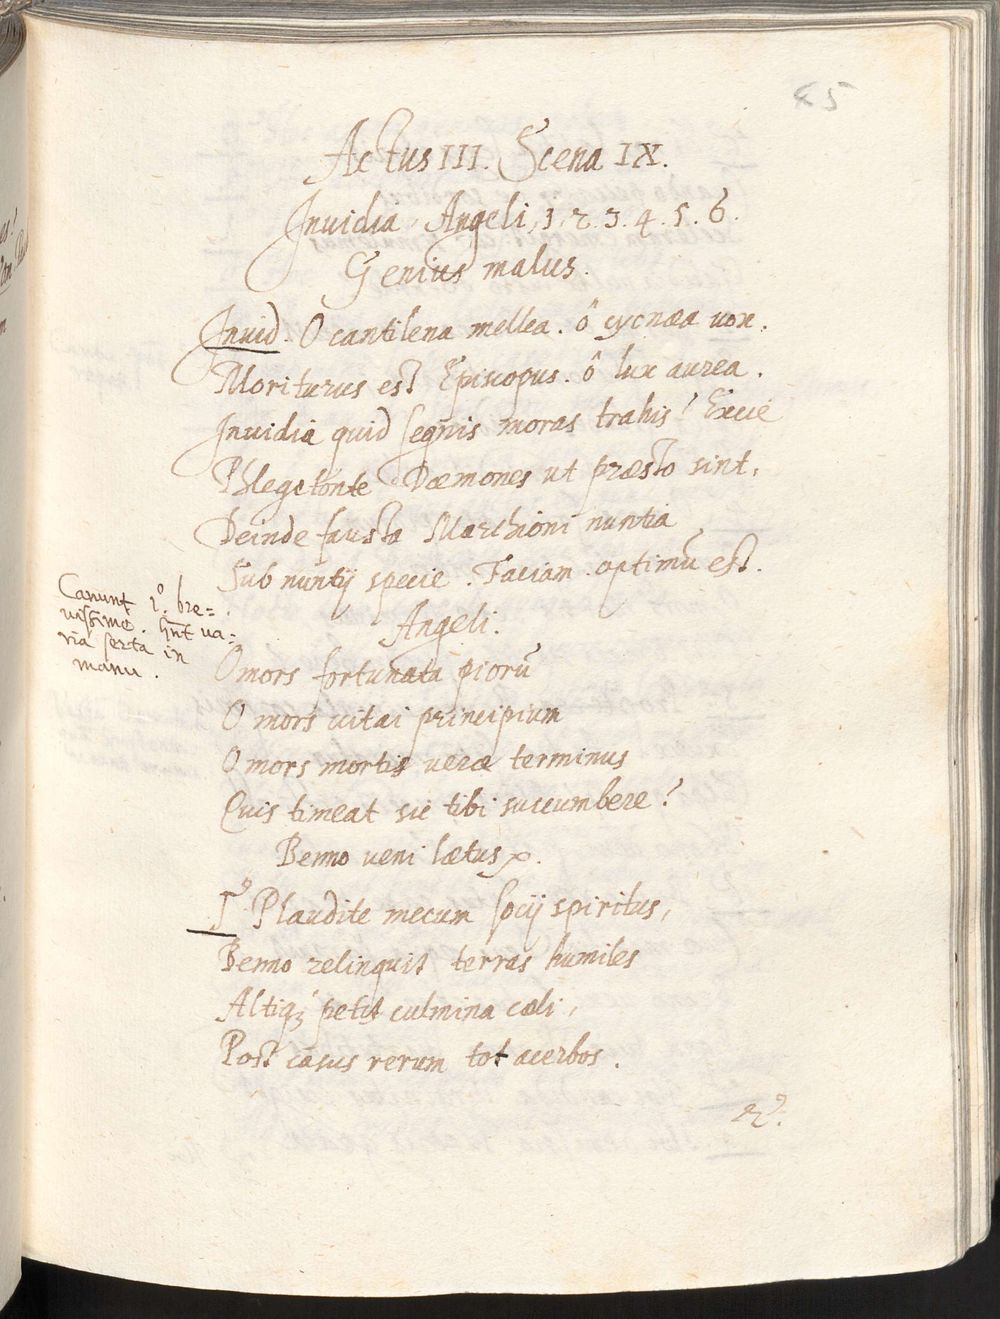 45
Actus III. Scena IX.
Inuidia, Angeli, 1. 2. 3. 4. 5. 6.
Genius malus.
Inuid. O cantilena mellea. ô cycnæa uox.
Moriturus est Episcopus. ô lux aurea.
Inuidia quid segnis moras trahis? Excie
Phlegetonte Dæmones ut præsto sint,
Deinde fausta Marchioni nuntia
Sub nuntij specie. Faciam. optimũ est.
Canunt 1.º bre=
uissime. Sint ua=
ria serta in
manu.
Angeli.
O mors fortunata piorũ
O mors uitai principium
O mors mortis ueræ terminus
Quis timeat sic tibi succumbere?
Benno ueni lætus
1.º Plaudite mecum socij spiritus,
Benno relinquit terras humiles
Altiq; petit culmina cœli,
Post casus rerum tot acerbos.
2.º